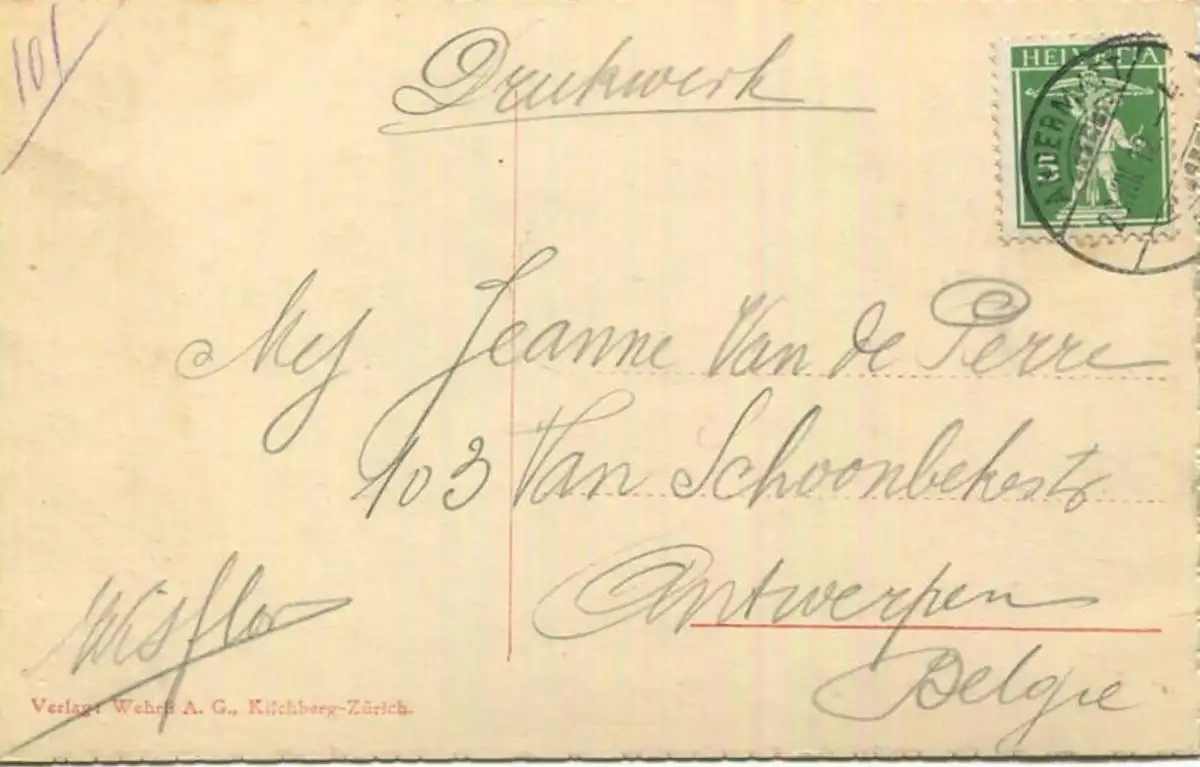 101
Drukwerk
HELVETIA
ANDERMATT
Mej Jeanne Van de Perre
103 Van Schoonbekestr
Antwerpen
Belgie
Verlag: Wehrli A. G., Kilchberg-Zürich.